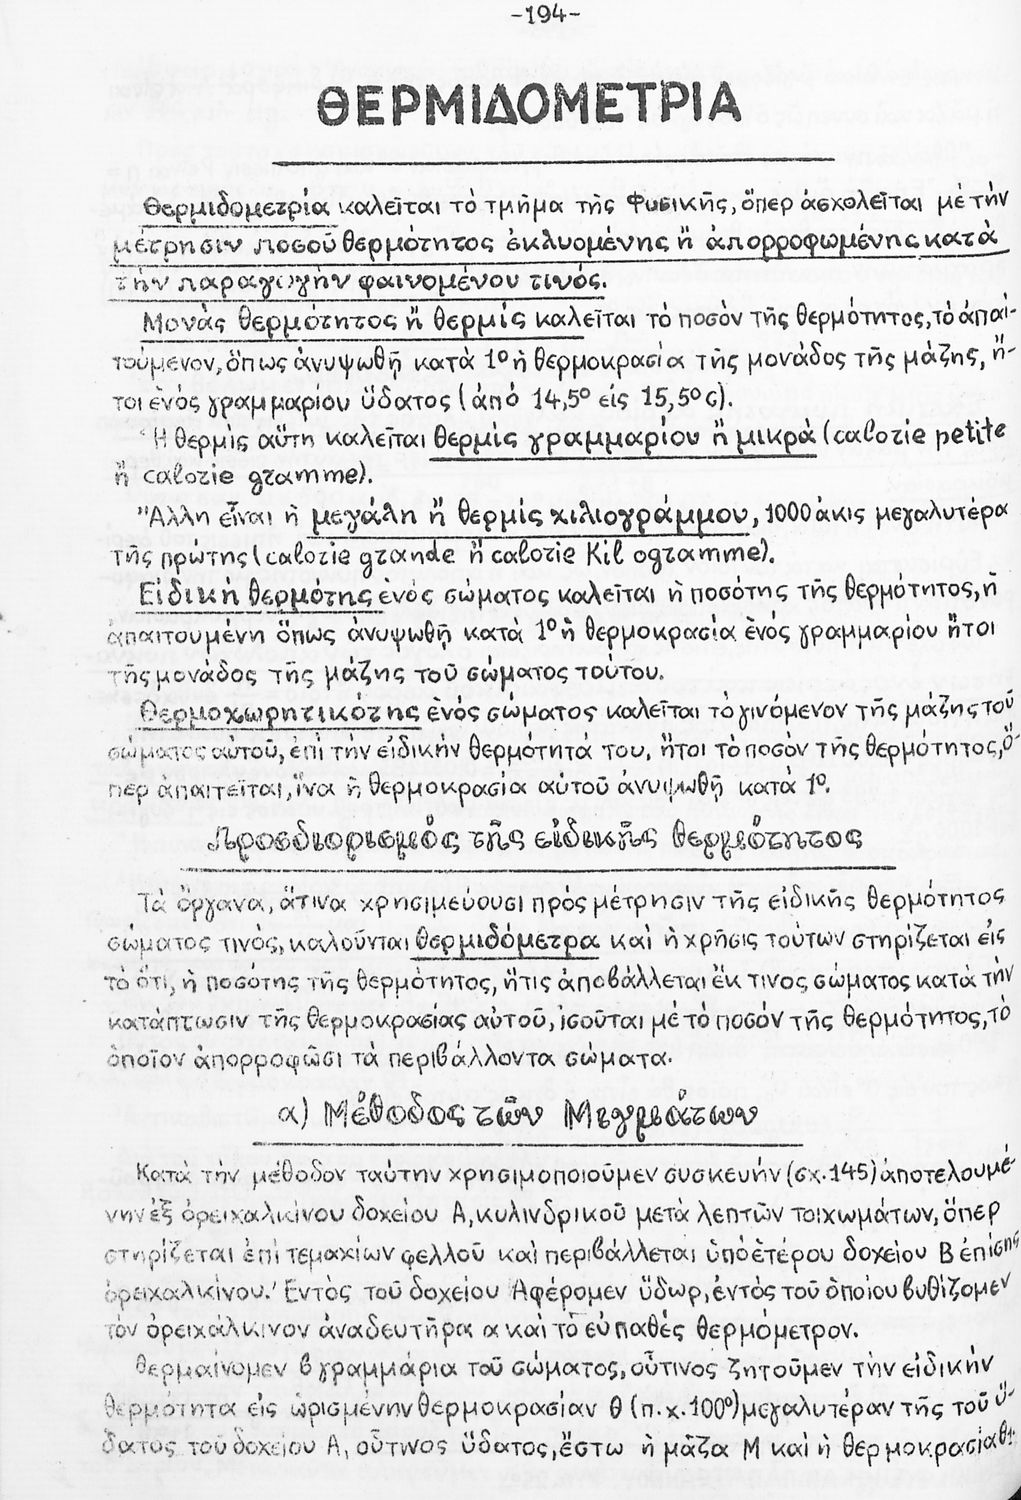 -194-
ΘΕΡΜΙΔΟΜΕΤΡΙΑ
Θερμιδομετρία καλεῖται τὸ τμῆμα τῆς Φυσικῆς, ὅπερ ἀσχολεῖται μὲ τὴν
μέτρησιν ποσοῦ θερμότητος ἐκλυομένης ἢ ἀπορροφωμένης κατὰ
τὴν παραγωγὴν φαινομένου τινός.
Μονὰς θερμότητος ἢ θερμὶς καλεῖται τὸ ποσὸν τῆς θερμότητος, τὸ ἀπαι-
τούμενον, ὅπως ἀνυψωθῇ κατὰ 1° ἡ θερμοκρασία τῆς μονάδος τῆς μάζης, ἤ-
τοι ἑνός γραμμαρίου ὕδατος (ἀπό 14,5° εἰς 15,5° C).
Ἡ θερμὶς αὕτη καλεῖται θερμὶς γραμμαρίου ἢ μικρὰ (calorie petite
ἢ calorie gramme).
Ἄλλη εἶναι ἡ μεγάλη ἢ θερμὶς χιλιογράμμου, 1000άκις μεγαλυτέρα
τῆς πρώτης (calorie grande ἢ calorie Kil ogramme).
Εἰδικὴ θερμότης ἑνὸς σώματος καλεῖται ἡ ποσότης τῆς θερμότητος, ἡ
ἀπαιτουμένη ὅπως ἀνυψωθῇ κατὰ 1° ἡ θερμοκρασία ἑνὸς γραμμαρίου ἤτοι
τῆς μονάδος τῆς μάζης τοῦ σώματος τούτου.
Θερμοχωρητικότης ἑνὸς σώματος καλεῖται τὸ γινόμενον τῆς μάζης τοῦ
σώματος αὐτοῦ, ἐπὶ τὴν εἰδικὴν θερμότητά του, ἤτοι τὸ ποσὸν τῆς θερμότητος, ὅ-
περ ἀπαιτεῖται, ἵνα ἡ θερμοκρασία αὐτοῦ ἀνυψωθῇ κατὰ 1°.
Προσδιορισμὸς τῆς εἰδικῆς θερμότητος
Τὰ ὄργανα, ἅτινα χρησιμεύουσι πρὸς μέτρησιν τῆς εἰδικῆς θερμότητος
σώματος τινός, καλοῦνται θερμιδόμετρα καὶ ἡ χρῆσις τούτων στηρίζεται εἰς
τὸ ὅτι, ἡ ποσότης τῆς θερμότητος, ἥτις ἀποβάλλεται ἔκ τινος σώματος κατὰ τὴν
κατάπτωσιν τῆς θερμοκρασίας αὐτοῦ, ἰσοῦται μὲ τὸ ποσὸν τῆς θερμότητος, τὸ
ὁποῖον ἀπορροφῶσι τὰ περιβάλλοντα σώματα.
α) Μέθοδος τῶν Μιγμάτων
Κατὰ τὴν μέθοδον ταύτην χρησιμοποιοῦμεν συσκευὴν (σχ. 145) ἀποτελουμέ-
νην ἐξ ὀρειχαλκίνου δοχείου Α, κυλινδρικοῦ μετὰ λεπτῶν τοιχωμάτων, ὅπερ
στηρίζεται ἐπὶ τεμαχίων φελλοῦ καὶ περιβάλλεται ὑπὸ ἑτέρου δοχείου Β ἐπίσης
ὀρειχαλκίνου. Ἐντὸς τοῦ δοχείου Α φέρομεν ὕδωρ, ἐντὸς τοῦ ὁποίου βυθίζομεν
τὸν ὀρειχάλκινον ἀναδευτῆρα α καὶ τὸ εὐπαθὲς θερμόμετρον.
Θερμαίνομεν β γραμμάρια τοῦ σώματος, οὗτινος ζητοῦμεν τὴν εἰδικὴν
θερμότητα εἰς ὡρισμένην θερμοκρασίαν θ (π.χ. 100°) μεγαλυτέραν τῆς τοῦ ὕ-
δατος τοῦ δοχείου Α, οὗτινος ὕδατος, ἔστω ἡ μάζα Μ καὶ ἡ θερμοκρασία